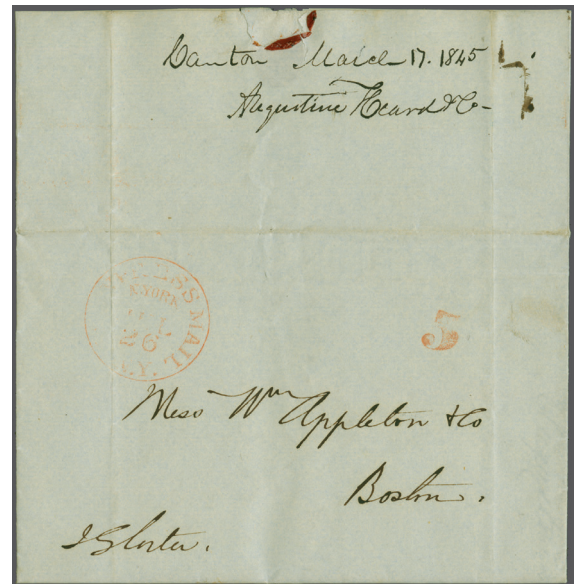 Canton March 17. 1845
Augustine Heard & Co-
EXPRESS MAIL
N.YORK
26
N.Y.
5
Mess Wm Appleton & Co
Boston.